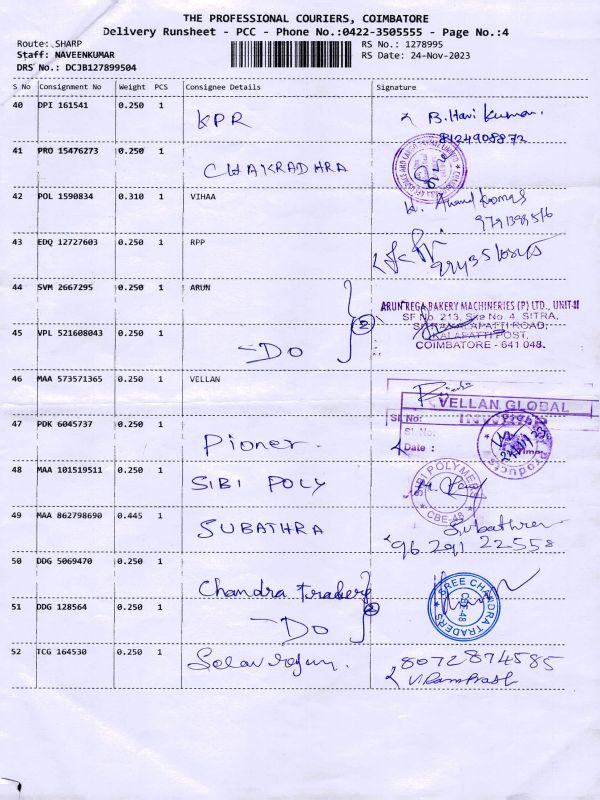 THE PROFESSIONAL COURIERS, COIMBATORE
Delivery Runsheet - PCC - Phone No.:0422-3505555 - Page No.:4
Route: SHARP
Staff: NAVEENKUMAR
DRS No.: DCJB127899504
RS No.: 1278995
RS Date: 24-Nov-2023
S No Consignment No Weight PCS Consignee Details Signature
40 DPI 161541 0.250 1 KPR B. Hari Kumar.
8124908872
41 PRO 15476273 0.250 1 CHAKRADHRA
42 POL 1590834 0.310 1 VIHAA
43 EDQ 12727603 0.250 1 RPP
44 SVM 2667295 0.250 1 ARUN
ARUN REGA BAKERY MACHINERIES (P) LTD., UNIT-II
SF No. 213, Site No. 4, SITRA,
KALAPATTI ROAD,
KALAPATTI POST,
COIMBATORE - 641 048.
45 VPL 521608043 0.250 1 -DO 2
46 MAA 573571365 0.250 1 VELLAN
VELLAN GLOBAL
Sl.No:
Date :
47 PDK 6045737 0.250 1 Pioner.
48 MAA 101519511 0.250 1 SIBI POLY
SIBI POLYMERS
CBE-48
49 MAA 862798690 0.445 1 SUBATHRA Subathra
96 291 22558
50 DDG 5069470 0.250 1 Chandra Traders
51 DDG 128564 0.250 1 -DO 2
SREE CHANDRA TRADERS
CBE-48
52 TCG 164530 0.250 1 8072874585